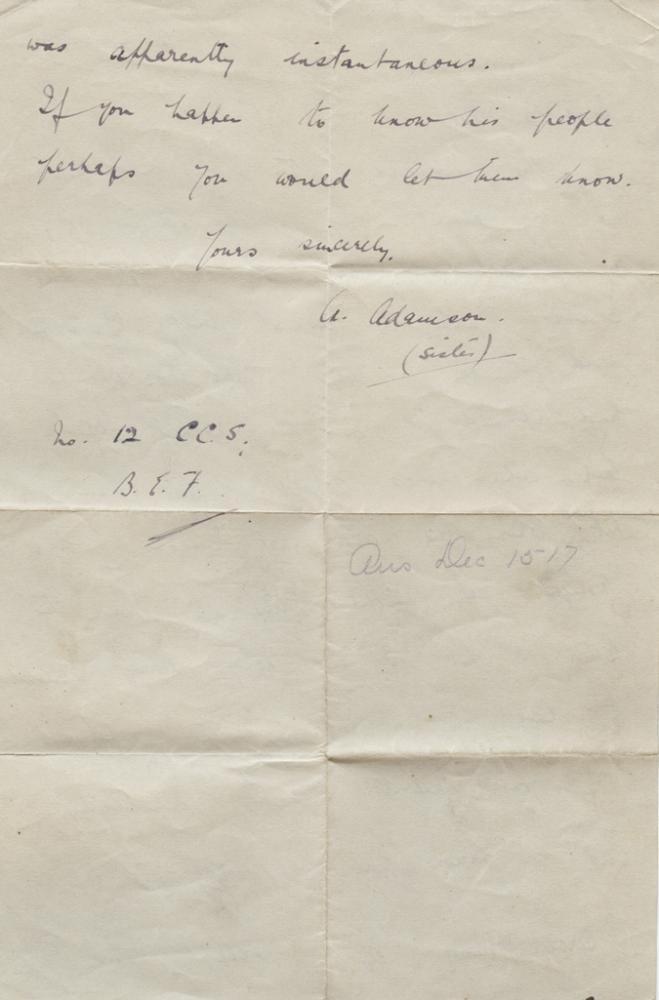 was apparently instantaneous.
If you happen to know his people
perhaps you would let them know.
Yours sincerely,
A. Adamson.
(Sister)
No. 12 C.C.S.
B.E.F.
Ans Dec 15-17